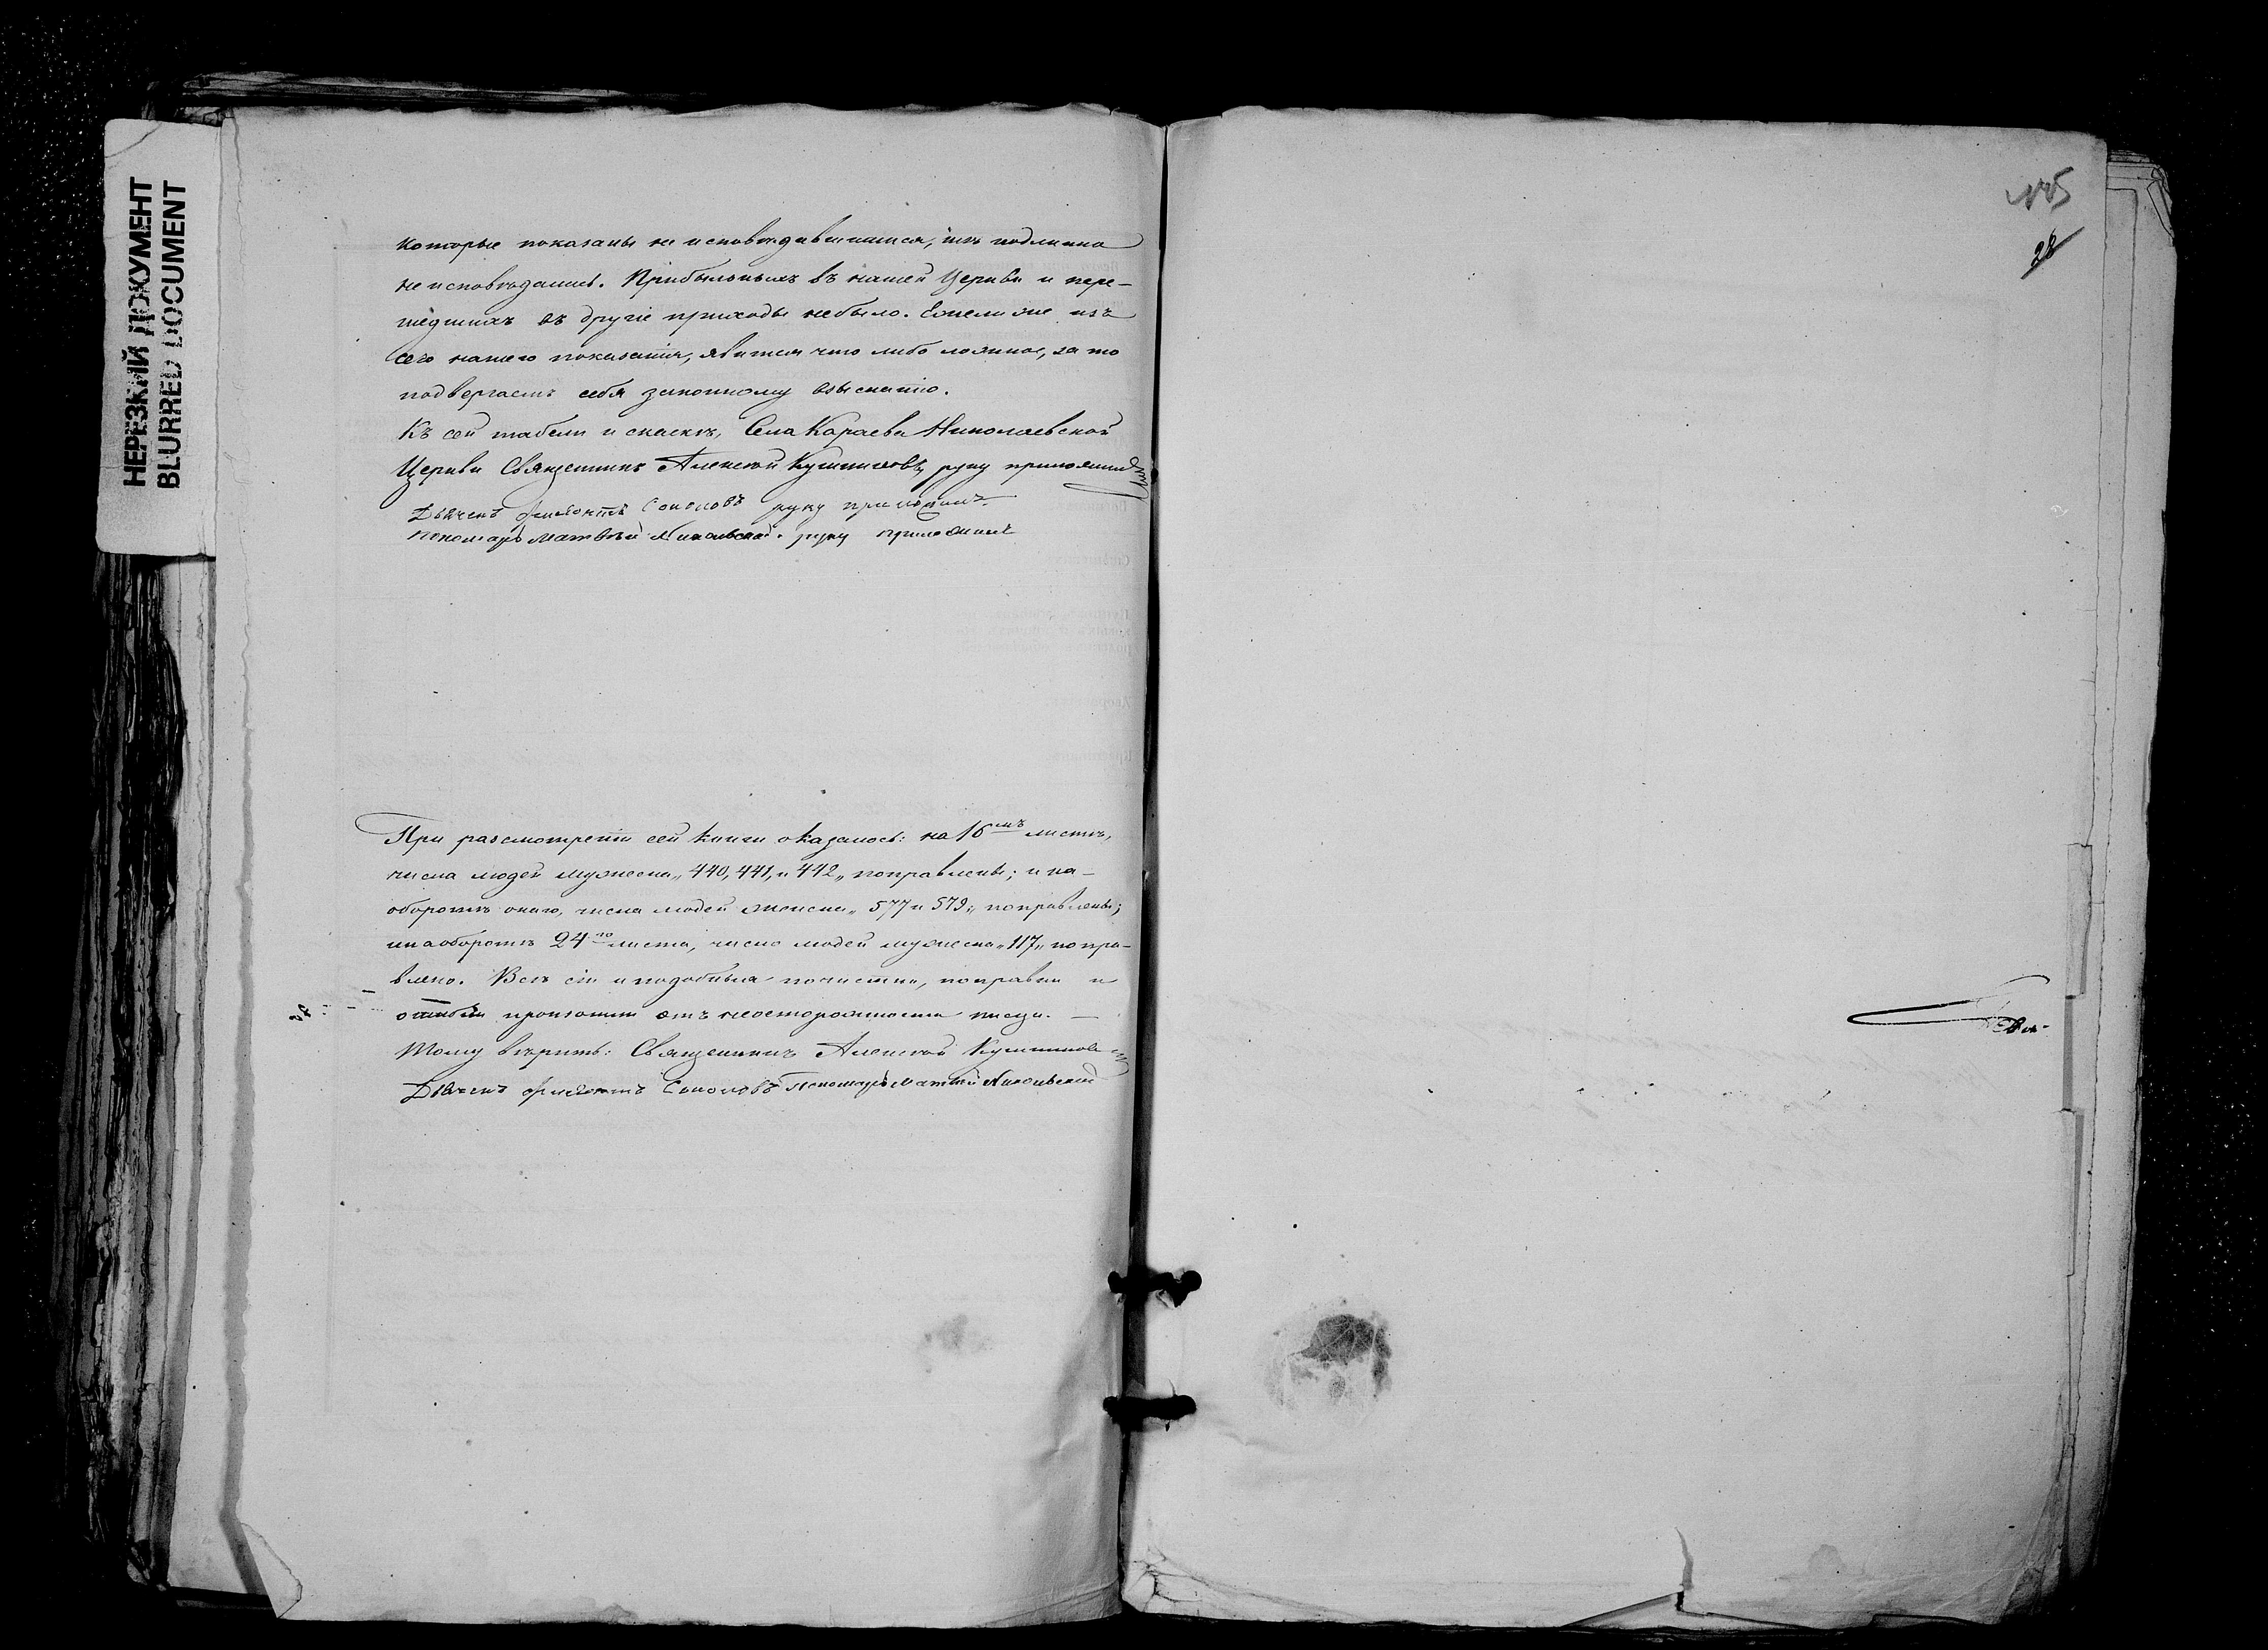 НЕРЕЗКИЙ ДОКУМЕНТ
BLURRED DOCUMENT
которые показаны не исповѣдавшимися, тѣ подлинно
не исповѣдались. Прибылыхъ въ нашей Церкви и пере-
шедшихъ въ другіе приходы небыло. Ежели же изъ
сего нашего показанія, явится что либо ложное, за то
подвергаемъ себя законному взысканію.
Къ сей табели и сказкѣ, Села Караева Николаевской
Церкви Священникъ Алексѣй руку приложилъ
Дьячекъ Соколовъ руку приложилъ.
Пономарь Матвѣй Никольской руку приложилъ
При разсмотреніи сей книги оказалось: на 16мъ листѣ,
числа людей мужеска „440, 441, и 442„ поправлены; и на-
оборотѣ онаго, числа людей женска „577 и 579„ поправлены;
и на оборотѣ 24го листа, число людей мужеска „117„ попра-
влено. Всѣ сіи и подобныя почистки, поправки и
ошибки произошли отъ неосторожности писца. —
Тому вѣритъ: Священникъ Алексѣй
Дьячекъ Соколовъ Пономарь Матвѣй Никольской
28